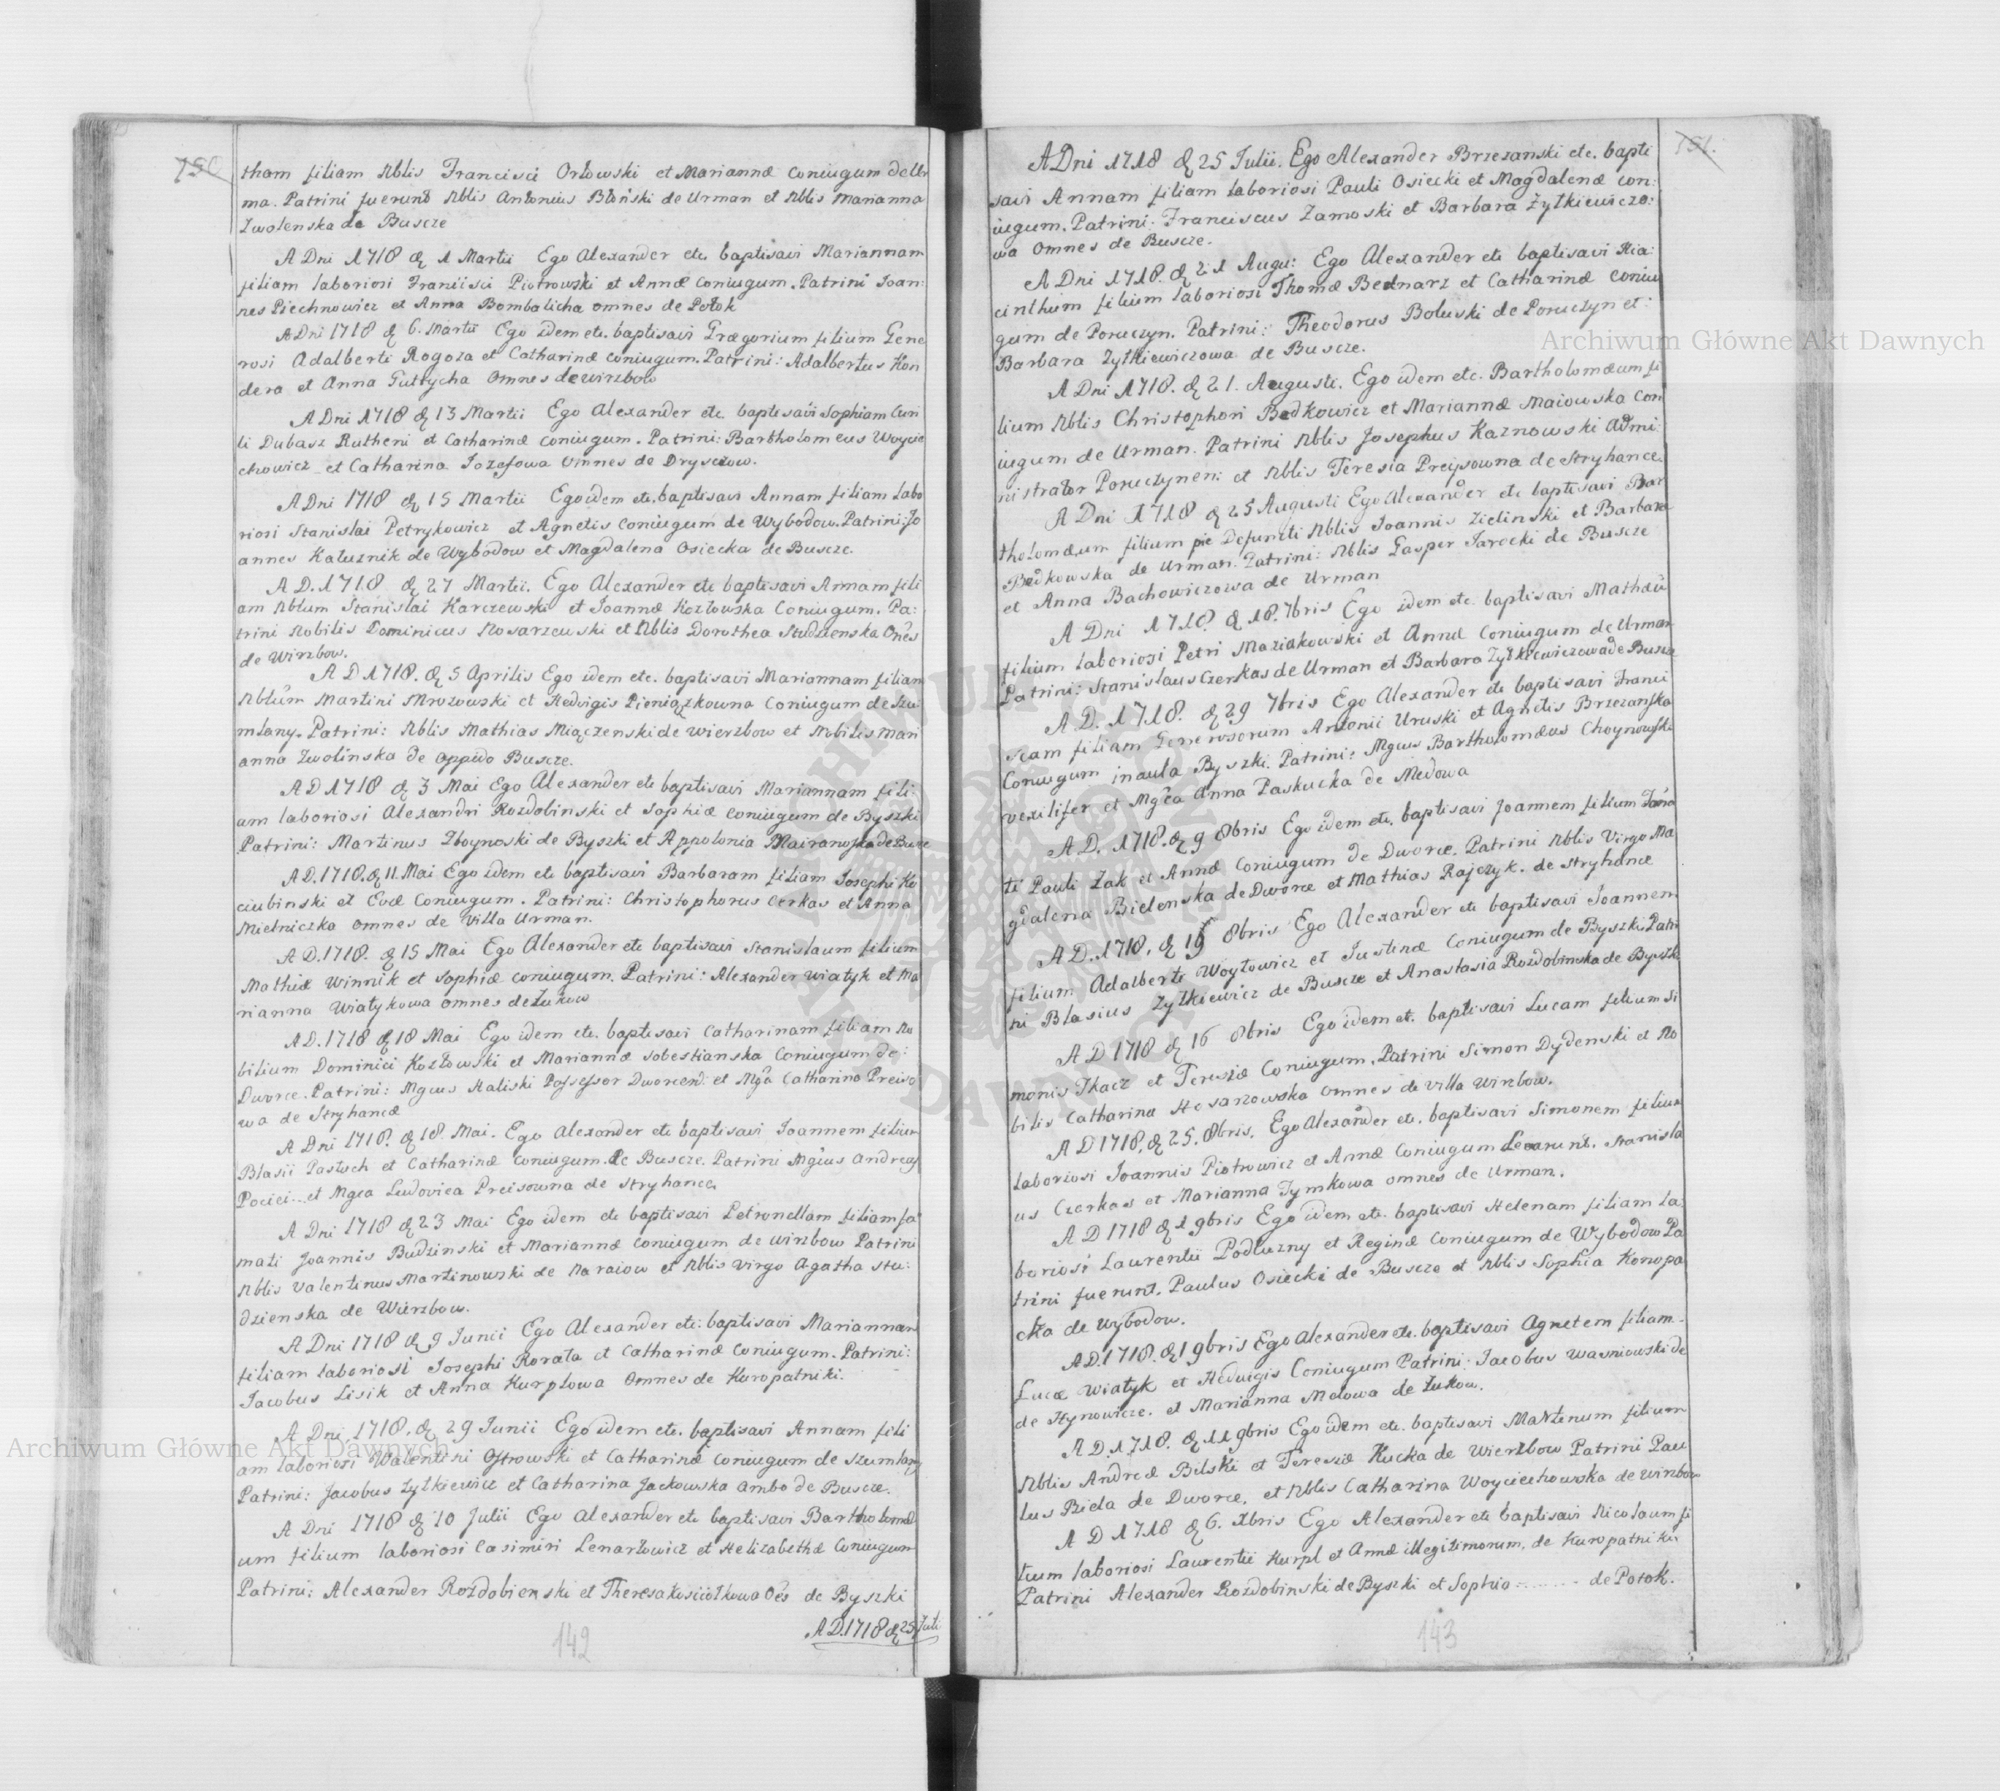 150
tham filiam Nblis Francisci Orłowski et Mariannæ Coniugum de Ur
ma. Patrini fuerunt Nblis Antonius Błoński de Urman et Nblis Marianna
Zwolenska de Buscze
A Dni 1718 d 1 Martii Ego Alexander etc baptisavi Mariannam
filiam laboriosi Francisci Piotrowski et Annæ Coniugum. Patrini Joan:
nes Piechnowicz et Anna Bombalicha omnes de Potok
A Dni 1718 d 6. Martii Ego idem etc. baptisavi Grægorium filium Gene
rosi Adalberti Rogoza et Catharinæ Coniugum. Patrini: Adalbertus Kon
dera et Anna Guttycha Omnes de Wirzbow
A Dni 1718 d 13 Martii Ego Alexander etc baptisavi Sophiam Ciri
li Dubasz Rutheni et Catharinæ Coniugum. Patrini: Bartholomeus Woycie
chowicz et Catharina Jozefowa Omnes de Dryszczow.
A Dni 1718 d 15 Martii Ego idem etc. baptisavi Annam filiam Labo
riosi Stanislai Petrykowicz et Agnetis Coniugum de Wybodow. Patrini: Jo
annes Kałuznik de Wybodow et Magdalena Osiecka de Buscze.
A D. 1718 d 27 Martii. Ego Alexander etc baptisavi Annam fili
am Nblium Stanislai Karczewski et Joannæ Kozłowska Coniugum. Pa:
trini Nobilis Dominicus Kosarzewski et Nblis Dorothea Studzienska Ones
de Wirzbow.
A D 1718. d 5 Aprilis Ego idem etc. baptisavi Mariannam filiam
Nblium Martini Mrozowski et Hedvigis Pieniązkowna Coniugum de Szu
mlany. Patrini: Nblis Mathias Miączenski de Wierzbow et Nobilis Mari
anna Zwolinska de oppido Buscze.
A D 1718 d 3 Mai Ego Alexander etc baptisavi Mariannam fili:
am laboriosi Alexandri Rozdobinski et Sophiæ Coniugum de Byszki
Patrini: Martinus Zboynoski de Byszki et Appolonia Mairanoska de Busce
A D. 1718. d 11. Mai Ego idem etc baptisavi Barbaram filiam Josephi Ko
ciubinski et Evæ Coniugum. Patrini: Christophorus Cerkas et Anna
Mielniczka omnes de villa Urman.
A D. 1718. d 15 Mai Ego Alexander etc baptisavi Stanislaum filium
Mathiæ Winnik et Sophiæ Coniugum. Patrini: Alexander Wiatyk et Ma
rianna Wiatykowa omnes de Łukow
A D. 1718 d 18 Mai Ego idem etc. baptisavi Catharinam filiam No
bilium Dominici Kozłowski et Mariannæ Sobestianska Coniugum de:
Dworce. Patrini: Mgcus Haliski Possessor Dworcen: et Mgca Catharina Preiso
wa de Stryhance
A Dni 1718. d 18. Mai. Ego Alexander etc baptisavi Joannem filium
Blasii Pastuch et Catharinæ Coniugum de Buscze. Patrini Mgcus Andreas
Pociei... et Mgca Ludovica Preisowna de Stryhance.
A Dni 1718 d 23 Mai Ego idem etc baptisavi Petronellam filiam fa
mati Joannis Budzinski et Mariannæ Coniugum de Wirzbow Patrini
Nblis Valentinus Martinowski de Naraiow et Nblis Virgo Agatha Stu:
dzienska de Wierzbow.
A Dni 1718 d 9 Junii Ego Alexander etc: baptisavi Mariannam
filiam laboriosi Josephi Rorata et Catharinæ Coniugum. Patrini:
Jacobus Lisik et Anna Kurplowa Omnes de Kuropatniki.
A Dni 1718. d 29 Junii Ego idem etc. baptisavi Annam fili
am laboriosi Walentini Ostrowski et Catharinæ Coniugum de Szumlany
Patrini: Jacobus Zytkiewicz et Catharina Jackowska ambo de Buscze.
A Dni 1718 d 10 Julii Ego Alexander etc baptisavi Bartholomæ
um filium laboriosi Casimiri Lenartowicz et Helizabethæ Coniugum
Patrini: Alexander Rozdobienski et Theresa Kosciołkowa Oes de Byszki
A D. 1718 d 25 Juli
142
151.
A Dni 1718 d 25 Julii. Ego Alexander Brzezanski etc. bapti
savi Annam filiam laboriosi Pauli Osiecki et Magdalenæ con:
iugum. Patrini: Franciscus Zamoski et Barbara Zytkiewiczo:
wa Omnes de Buscze.
A Dni 1718. d 21 Augu: Ego Alexander etc baptisavi Hia:
cinthum filium laboriosi Thomæ Bednarz et Catharinæ coniu
gum de Poruczyn. Patrini: Theodorus Boluski de Poruczyn et:
Barbara Zytkiewiczowa de Buscze.
A Dni 1718. d 21. Augusti. Ego idem etc. Bartholomæum fi
lium Nblis Christophori Bedkowicz et Mariannæ Maiowska Con
iugum de Urman. Patrini Nblis Josephus Kaznowski Admi:
nistrator Poruczynen: et Nblis Teresia Preysowna de Stryhance.
A Dni 1718 d 25 Augusti Ego Alexander etc baptisavi Bar
tholomæum filium pie Defuncti Nblis Joannis Zielinski et Barbaræ
Bedkowska de Urman. Patrini: Nblis Gasper Jarocki de Buscze
et Anna Bachowiczowa de Urman
A Dni 1718. d 18. 7bris Ego idem etc. baptisavi Mathæū
filium laboriosi Petri Maziakowski et Annæ Coniugum de Urman
Patrini: Stanislaus Czerkas de Urman et Barbara Zytkiewiczowa de Buscze
A D. 1718. d 29 7bris Ego Alexander etc baptisavi Franci
scam filiam Generosorum Antonii Uruski et Agnetis Brzezanska
Coniugum in aula Byszki. Patrini: Mgcus Bartholomæus Choynowski
vexilifer et Mgca Anna Paskucka de Medowa
A D. 1718. d 9 8bris Ego idem etc. baptisavi Joannem filium Fama
ti Pauli Zak et Annæ Coniugum de Dworce. Patrini Nblis Virgo Ma
gdalena Bielenska de Dworce et Mathias Rajczyk. de Stryhance
A D. 1718. d 15 8bris Ego Alexander etc baptisavi Joannem
filium Adalberti Woytowicz et Justinæ Coniugum de Byszki Patri
ni Blasius Zytkiewicz de Buscze et Anastasia Rozdobinska de Byszki
A D 1718 d 16 8bris Ego idem etc. baptisavi Lucam filium Si
monis Tkacz et Teresiæ Coniugum. Patrini Simon Dydenski et No
bilis Catharina Kosarzowska omnes de villa Wirzbow.
A D 1718. d 25. 8bris. Ego Alexander etc. baptisavi Simonem filium
laboriosi Joannis Piotrowicz et Annæ Coniugum Levarunt. Stanisla
us Czerkas et Marianna Tymkowa omnes de Urman.
A D 1718 d 1 9bris Ego idem etc. baptisavi Helenam filiam la:
boriosi Laurentii Podluzny et Reginæ Coniugum de Wybodow Pa
trini fuerunt. Paulus Osiecki de Buscze et Nblis Sophia Konopa
cka de Wybodow.
A D. 1718. d 1 9bris Ego Alexander etc. baptisavi Agnetem filiam.
Lucæ Wiatyk et Hedvigis Coniugum Patrini: Jacobus Wasniowski de
de Hynowicze. et Marianna Molowa de Łukow.
A D. 1718. d 11 9bris Ego idem etc. baptisavi Martinum filium
Nblis Andreæ Bilski et Teresiæ Kucka de Wierzbow Patrini Pau
lus Biela de Dworce, et Nblis Catharina Woyciechowska de Wirzbow
A D 1718 d 6. Xbris Ego Alexander etc baptisavi Nicolaum fi
lium laboriosi Laurentii Kurpl et Annæ illegitimorum, de Kuropatniki
Patrini Alexander Rozdobinski de Byszki et Sophia ........ de Potok.
143
Archiwum Główne Akt Dawnych
Archiwum Główne Akt Dawnych
ARCHIWUM GŁÓWNE AKT DAWNYCH